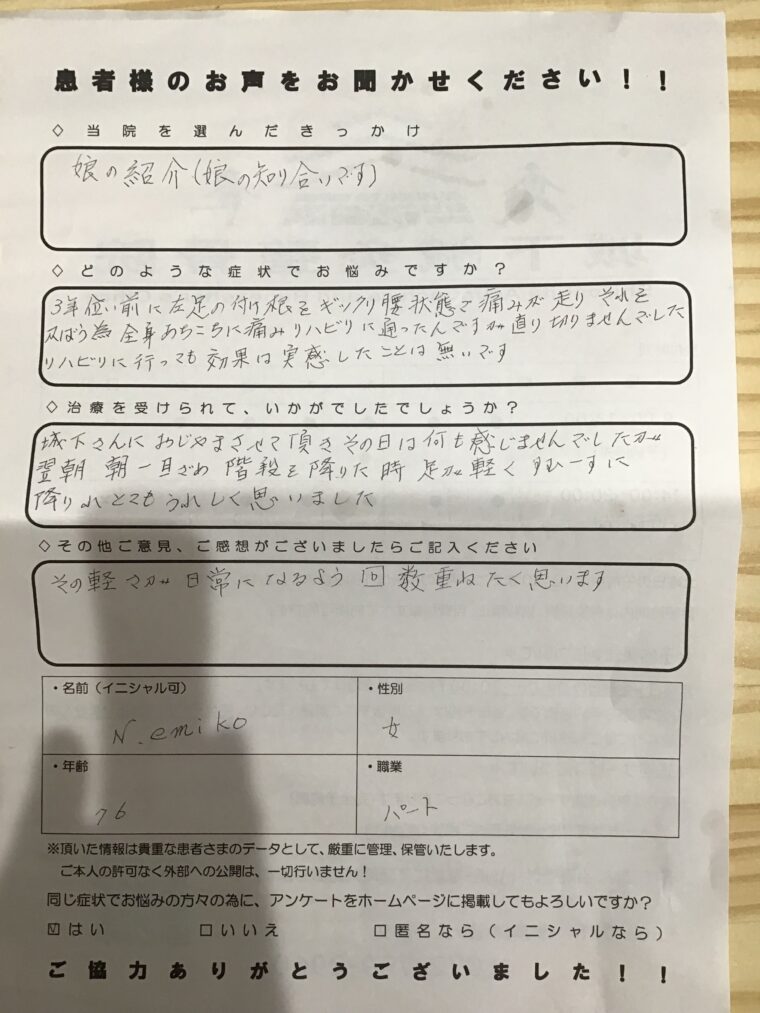 患者様のお声をお聞かせください！！
◇当院を選んだきっかけ
娘の紹介(娘の知り合いです)
◇どのような症状でお悩みですか？
3年位い前に左足の付け根をギックリ腰状態で痛みが走りそれを
及ぼう為全身あちこちに痛みリハビリに通ったんですが直り切りませんでした
リハビリに行っても効果は実感したことは無いです
◇治療を受けられて、いかがでしたでしょうか？
城下さんにおじゃまさせて頂きその日は何も感じませんでしたが
翌朝 朝一目ざめ 階段を降りた時 足が軽く すむーずに
降りれとてもうれしく思いました
◇その他ご意見、ご感想がございましたらご記入ください
その軽さが日常になるよう回数重ねたく思います
・名前（イニシャル可）
・性別
N.emiko
女
・年齢
・職業
76
パート
※頂いた情報は貴重な患者さまのデータとして、厳重に管理、保管いたします。
ご本人の許可なく外部への公開は、一切行いません！
同じ症状でお悩みの方々の為に、アンケートをホームページに掲載してもよろしいですか？
☑はい □いいえ □匿名なら（イニシャルなら）
ご協力ありがとうございました！！